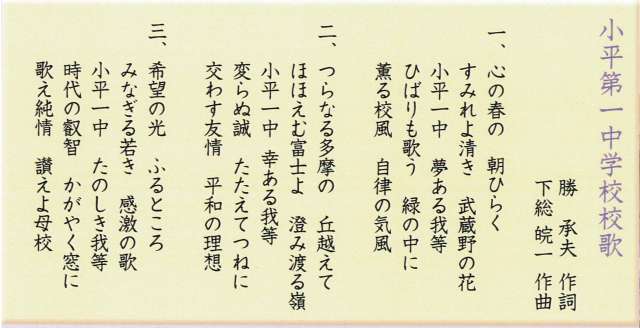 小平第一中学校校歌
勝　承夫　作詞
下総　皖一　作曲
一、心の春の　朝ひらく
すみれよ清き　武蔵野の花
小平一中　夢ある我等
ひばりも歌う　緑の中に
薫る校風　自律の気風
二、つらなる多摩の　丘越えて
ほほえむ富士よ　澄み渡る嶺
小平一中　幸ある我等
変らぬ誠　たたえてつねに
交わす友情　平和の理想
三、希望の光　ふるところ
みなぎる若き　感激の歌
小平一中　たのしき我等
時代の叡智　かがやく窓に
歌え純情　讃えよ母校